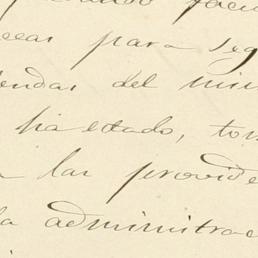 para seg
endas del min
ha estado, tom
a las provide
la administrac